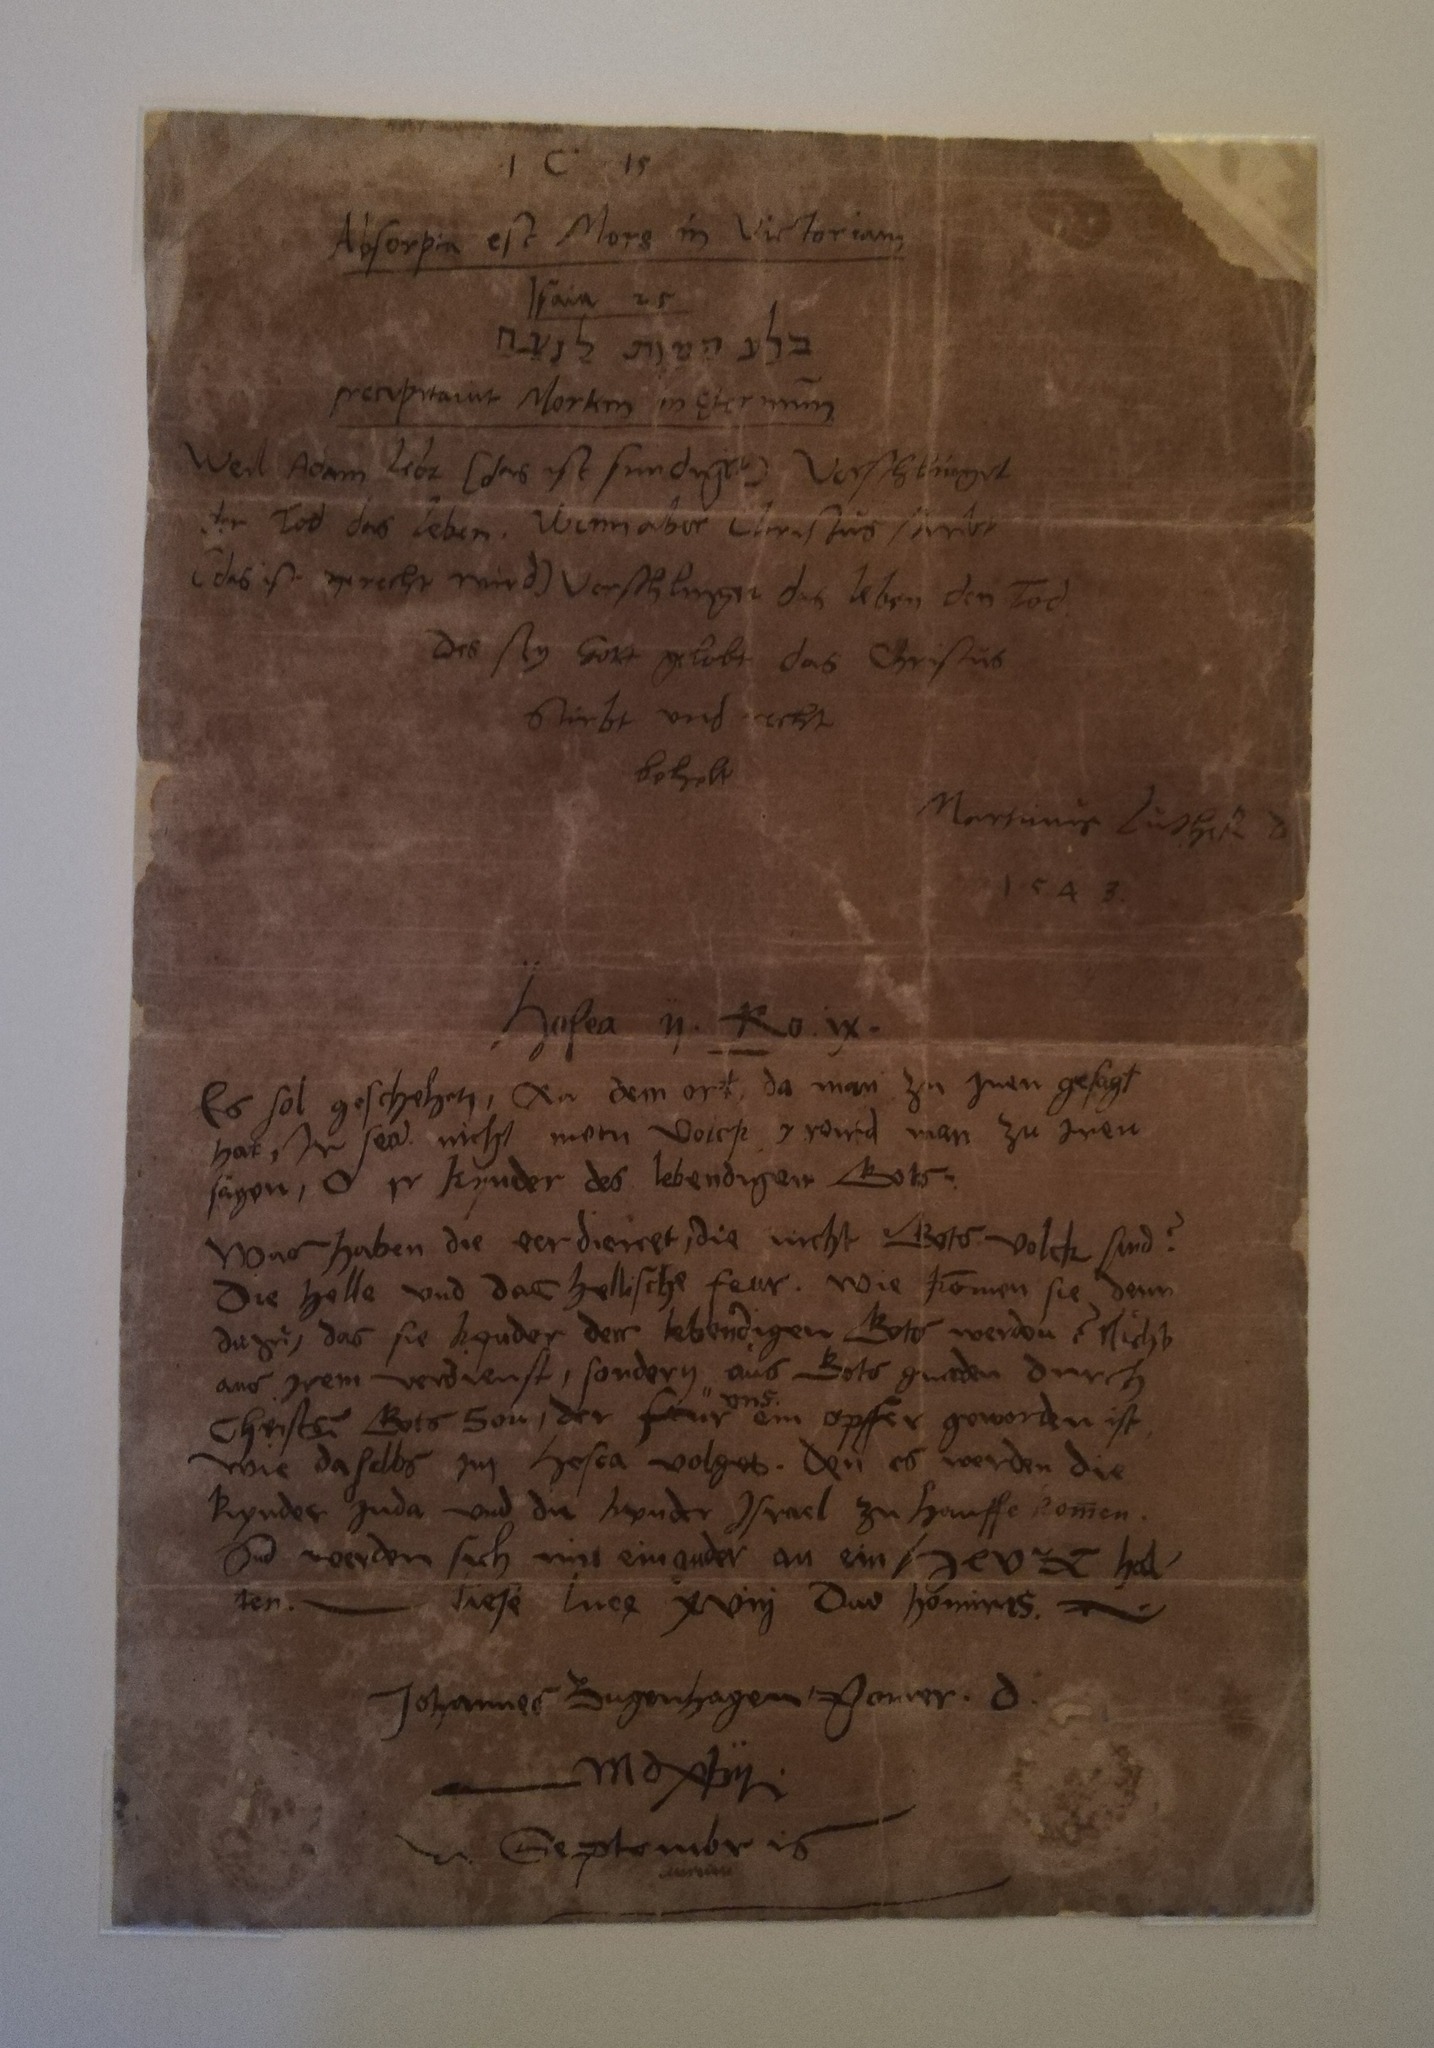 1 C 15
Absorpta est Mors in Victoriam
Isaia 25
בלע המות לנצח
precipitavit Mortem in Eternum
Weil Adam lebt (das ist sundiget) Verschlinget
der Tod das leben. Wenn aber Christus stirbt
(das ist gerecht wird) Verschlinget das leben den Tod
Des sey Gott gelobt das Christus
stirbt und recht
behelt
Martinus Luther D
1543.
Hosea ij. Ro. ix.
Es sol geschehen, An dem ort, da man zu jnen gesagt
hat, Ir seid nicht mein Volck, wird man zu jnen
sagen, O jr kynder des lebendigen Gots.
Was haben die verdienet, die nicht Gots volck sind?
Die helle und das hellische feur. Wie komen sie denn
dazu, das sie kynder des lebendigen Gots werden? Nicht
aus jrem verdienst, sondern aus Gots gnaden durch
Christum Gots Son, der für uns ein opffer geworden ist
Wie daselbs im Hosea volget. Den es werden die
kynder Juda und die kynder Israel zu hauffe komen.
Und werden sich mit einander an ein HEUBT hal
ten. Luce xviij hominis.
Johannes Bugenhagen Pomer. D.
Septembris